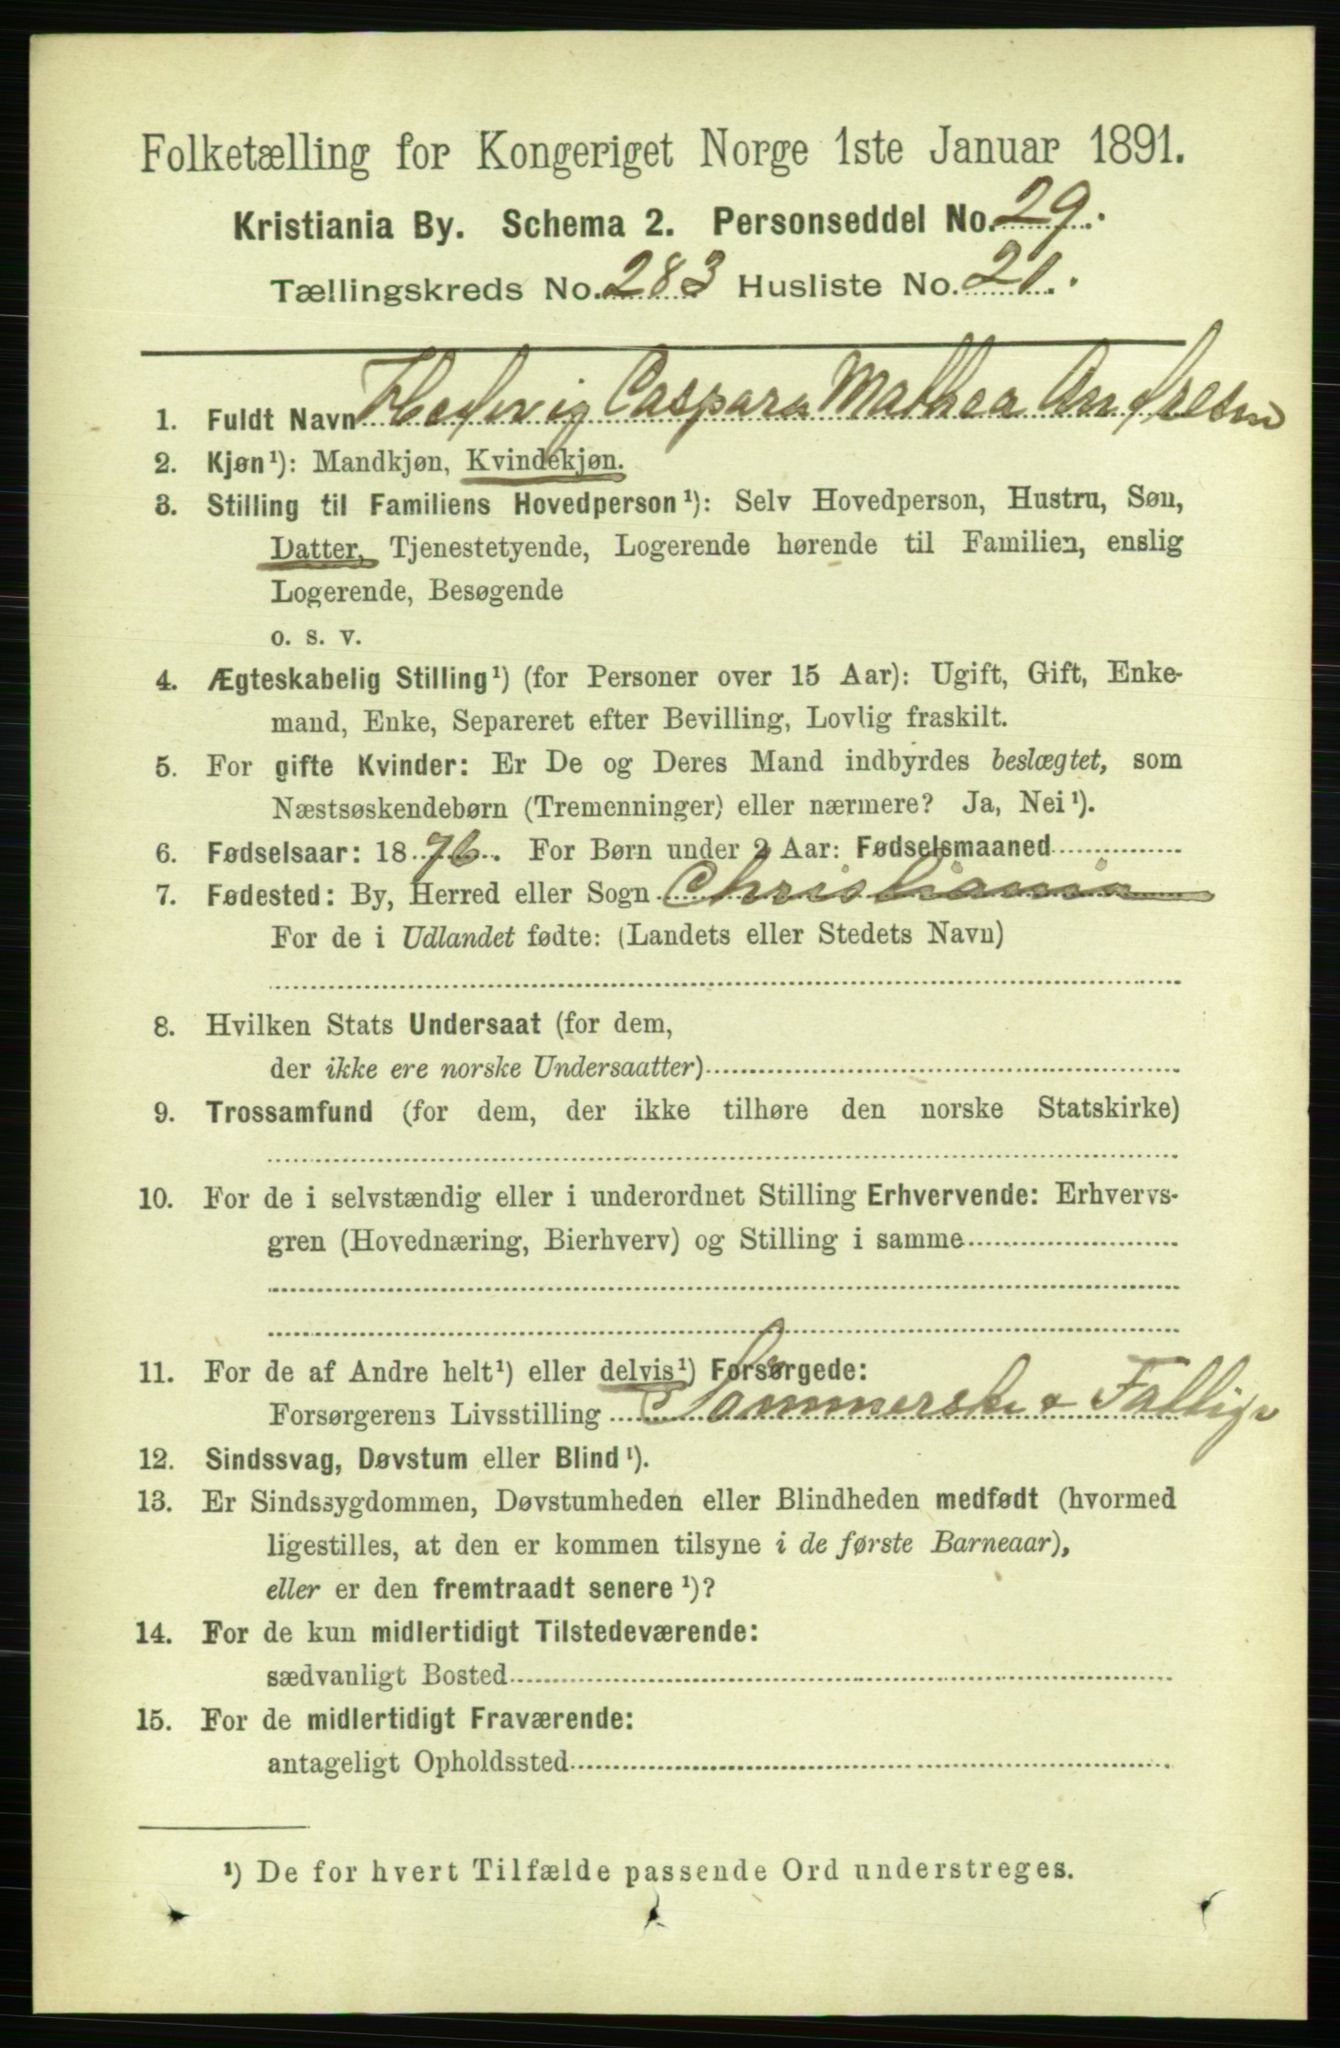 Folketælling for Kongeriget Norge 1ste Januar 1891.
Kristiania By. Schema 2. Personseddel No. 29.
Tællingskreds No. 283 Husliste No. 21.
1. Fuldt Navn Hedvig Caspara Mathea Andresen
2. Kjøn¹): Mandkjøn, Kvindekjøn.
3. Stilling til Familiens Hovedperson¹): Selv Hovedperson, Hustru, Søn,
Datter, Tjenestetyende, Logerende hørende til Familien, enslig
Logerende, Besøgende
o. s. v.
4. Ægteskabelig Stilling¹) (for Personer over 15 Aar): Ugift, Gift, Enke-
mand, Enke, Separeret efter Bevilling, Lovlig fraskilt.
5. For gifte Kvinder: Er De og Deres Mand indbyrdes beslægtet, som
Næstsøskendebørn (Tremenninger) eller nærmere? Ja, Nei¹).
6. Fødselsaar: 1876. For Børn under 2 Aar: Fødselsmaaned
7. Fødested: By, Herred eller Sogn Christiania
For de i Udlandet fødte: (Landets eller Stedets Navn)
8. Hvilken Stats Undersaat (for dem,
der ikke ere norske Undersaatter)
9. Trossamfund (for dem, der ikke tilhøre den norske Statskirke)
10. For de i selvstændig eller i underordnet Stilling Erhvervende: Erhvervs-
gren (Hovednæring, Bierhverv) og Stilling i samme
11. For de af Andre helt¹) eller delvis¹) Forsørgede:
Forsørgerens Livsstilling
12. Sindssvag, Døvstum eller Blind¹).
13. Er Sindssygdommen, Døvstumheden eller Blindheden medfødt (hvormed
ligestilles, at den er kommen tilsyne i de første Barneaar),
eller er den fremtraadt senere¹)?
14. For de kun midlertidigt Tilstedeværende:
sædvanligt Bosted
15. For de midlertidigt Fraværende:
antageligt Opholdssted
¹) De for hvert Tilfælde passende Ord understreges.